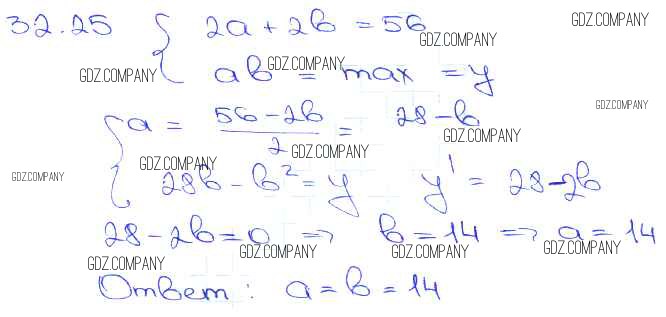 32.25 { 2a + 2b = 56 GDZ.COMPANY
GDZ.COMPANY
GDZ.COMPANY ab = max = y GDZ.COMPANY
{ a = (56 - 2b)/2 = 28 - b GDZ.COMPANY
GDZ.COMPANY GDZ.COMPANY
GDZ.COMPANY GDZ.COMPANY
28b - b² = y y' = 28 - 2b
28 - 2b = 0 ⇒ b = 14 ⇒ a = 14
GDZ.COMPANY GDZ.COMPANY GDZ.COMPANY
GDZ.COMPANY
Ответ: a = b = 14